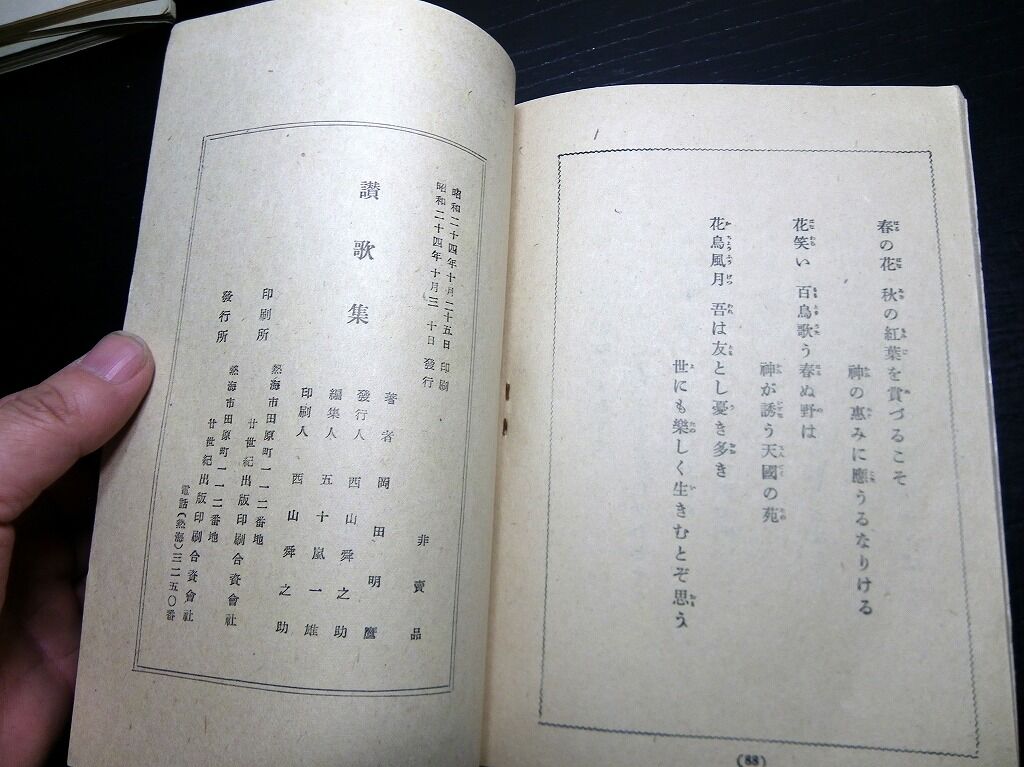 春の花 秋の紅葉を賞づるこそ
神の惠みに應うるなりける
花笑い 百鳥歌う春ぬ野は
神が誘う天國の苑
花鳥風月 吾は友とし憂き多き
世にも樂しく生きむとぞ思う
(88)
昭和二十四年十月二十五日 印刷
昭和二十四年十月三十日 發行
非賣品
讃歌集
著者 岡田明麿
發行人 西山舜之助
編集人 五十嵐一雄
印刷人 西山舜之助
熱海市田原町一一二番地
印刷所 廿世紀出版印刷合資會社
熱海市田原町一一二番地
發行所 廿世紀出版印刷合資會社
電話(熱海)三二五〇番